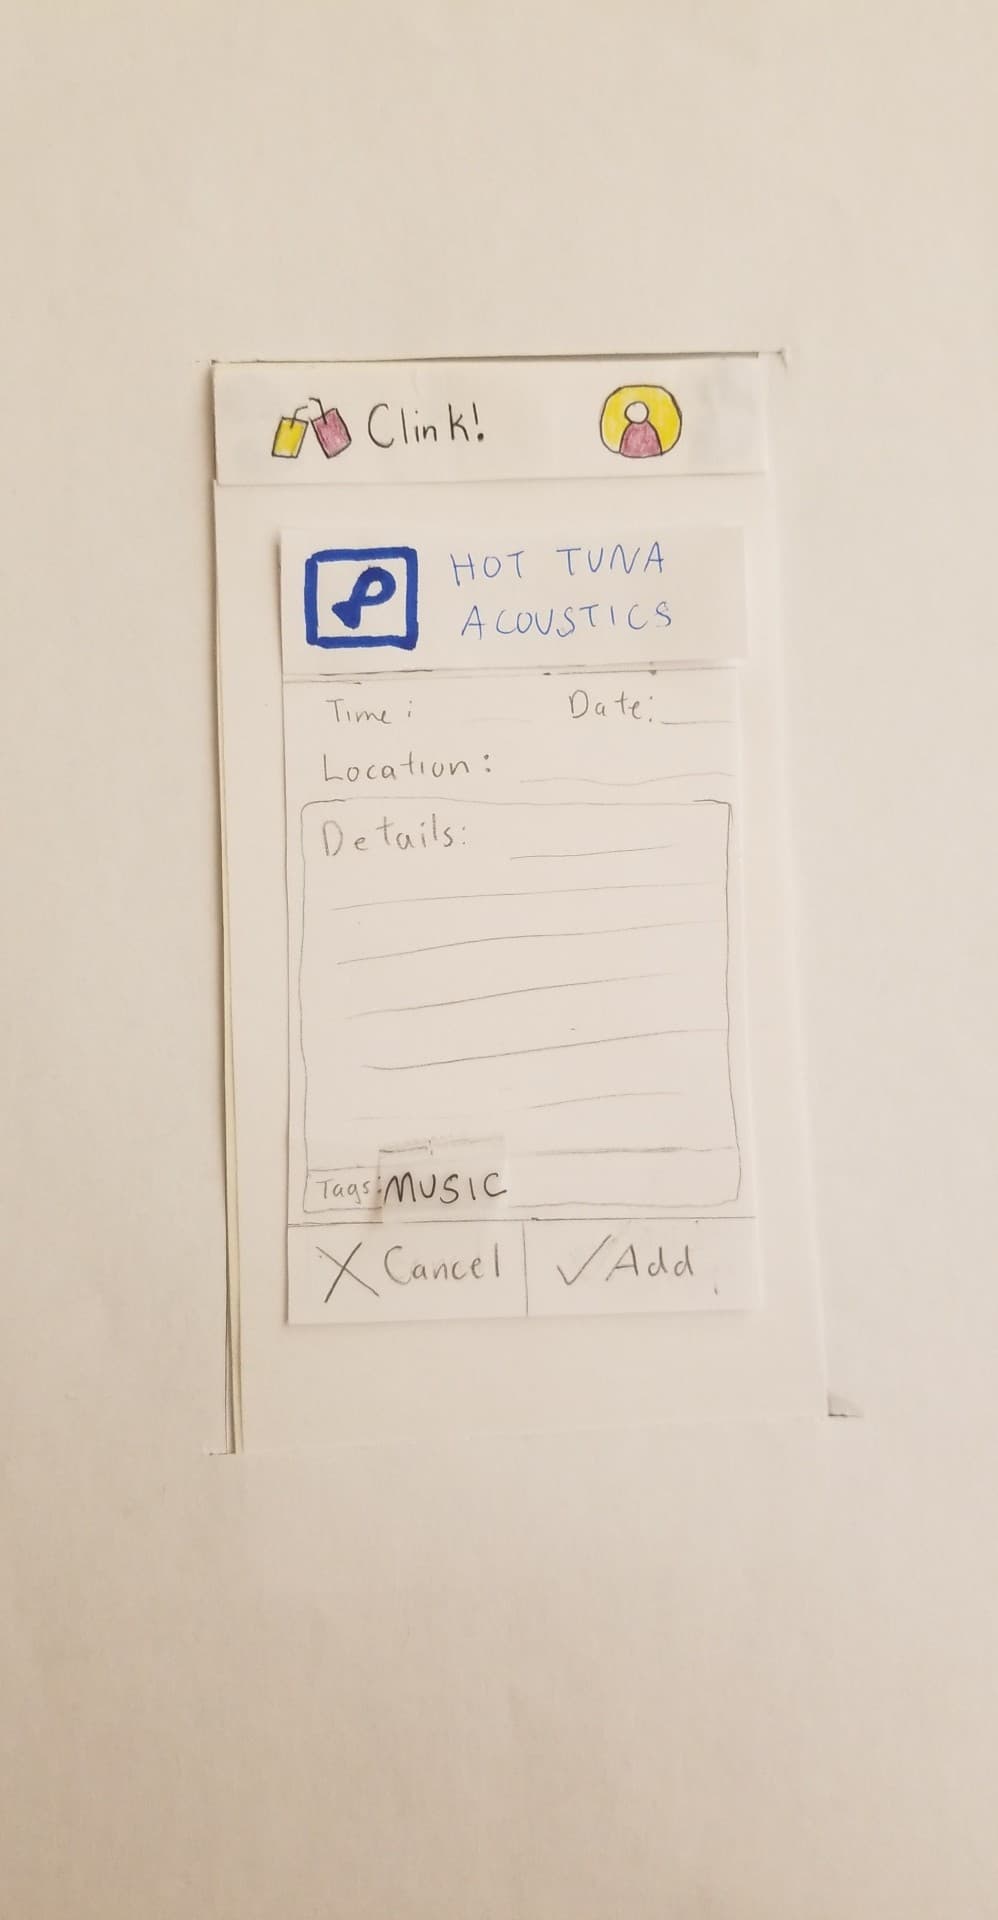 Clink!
HOT TUNA
ACOUSTICS
Time: Date:
Location:
Details:
Tags: MUSIC
X Cancel ✓ Add